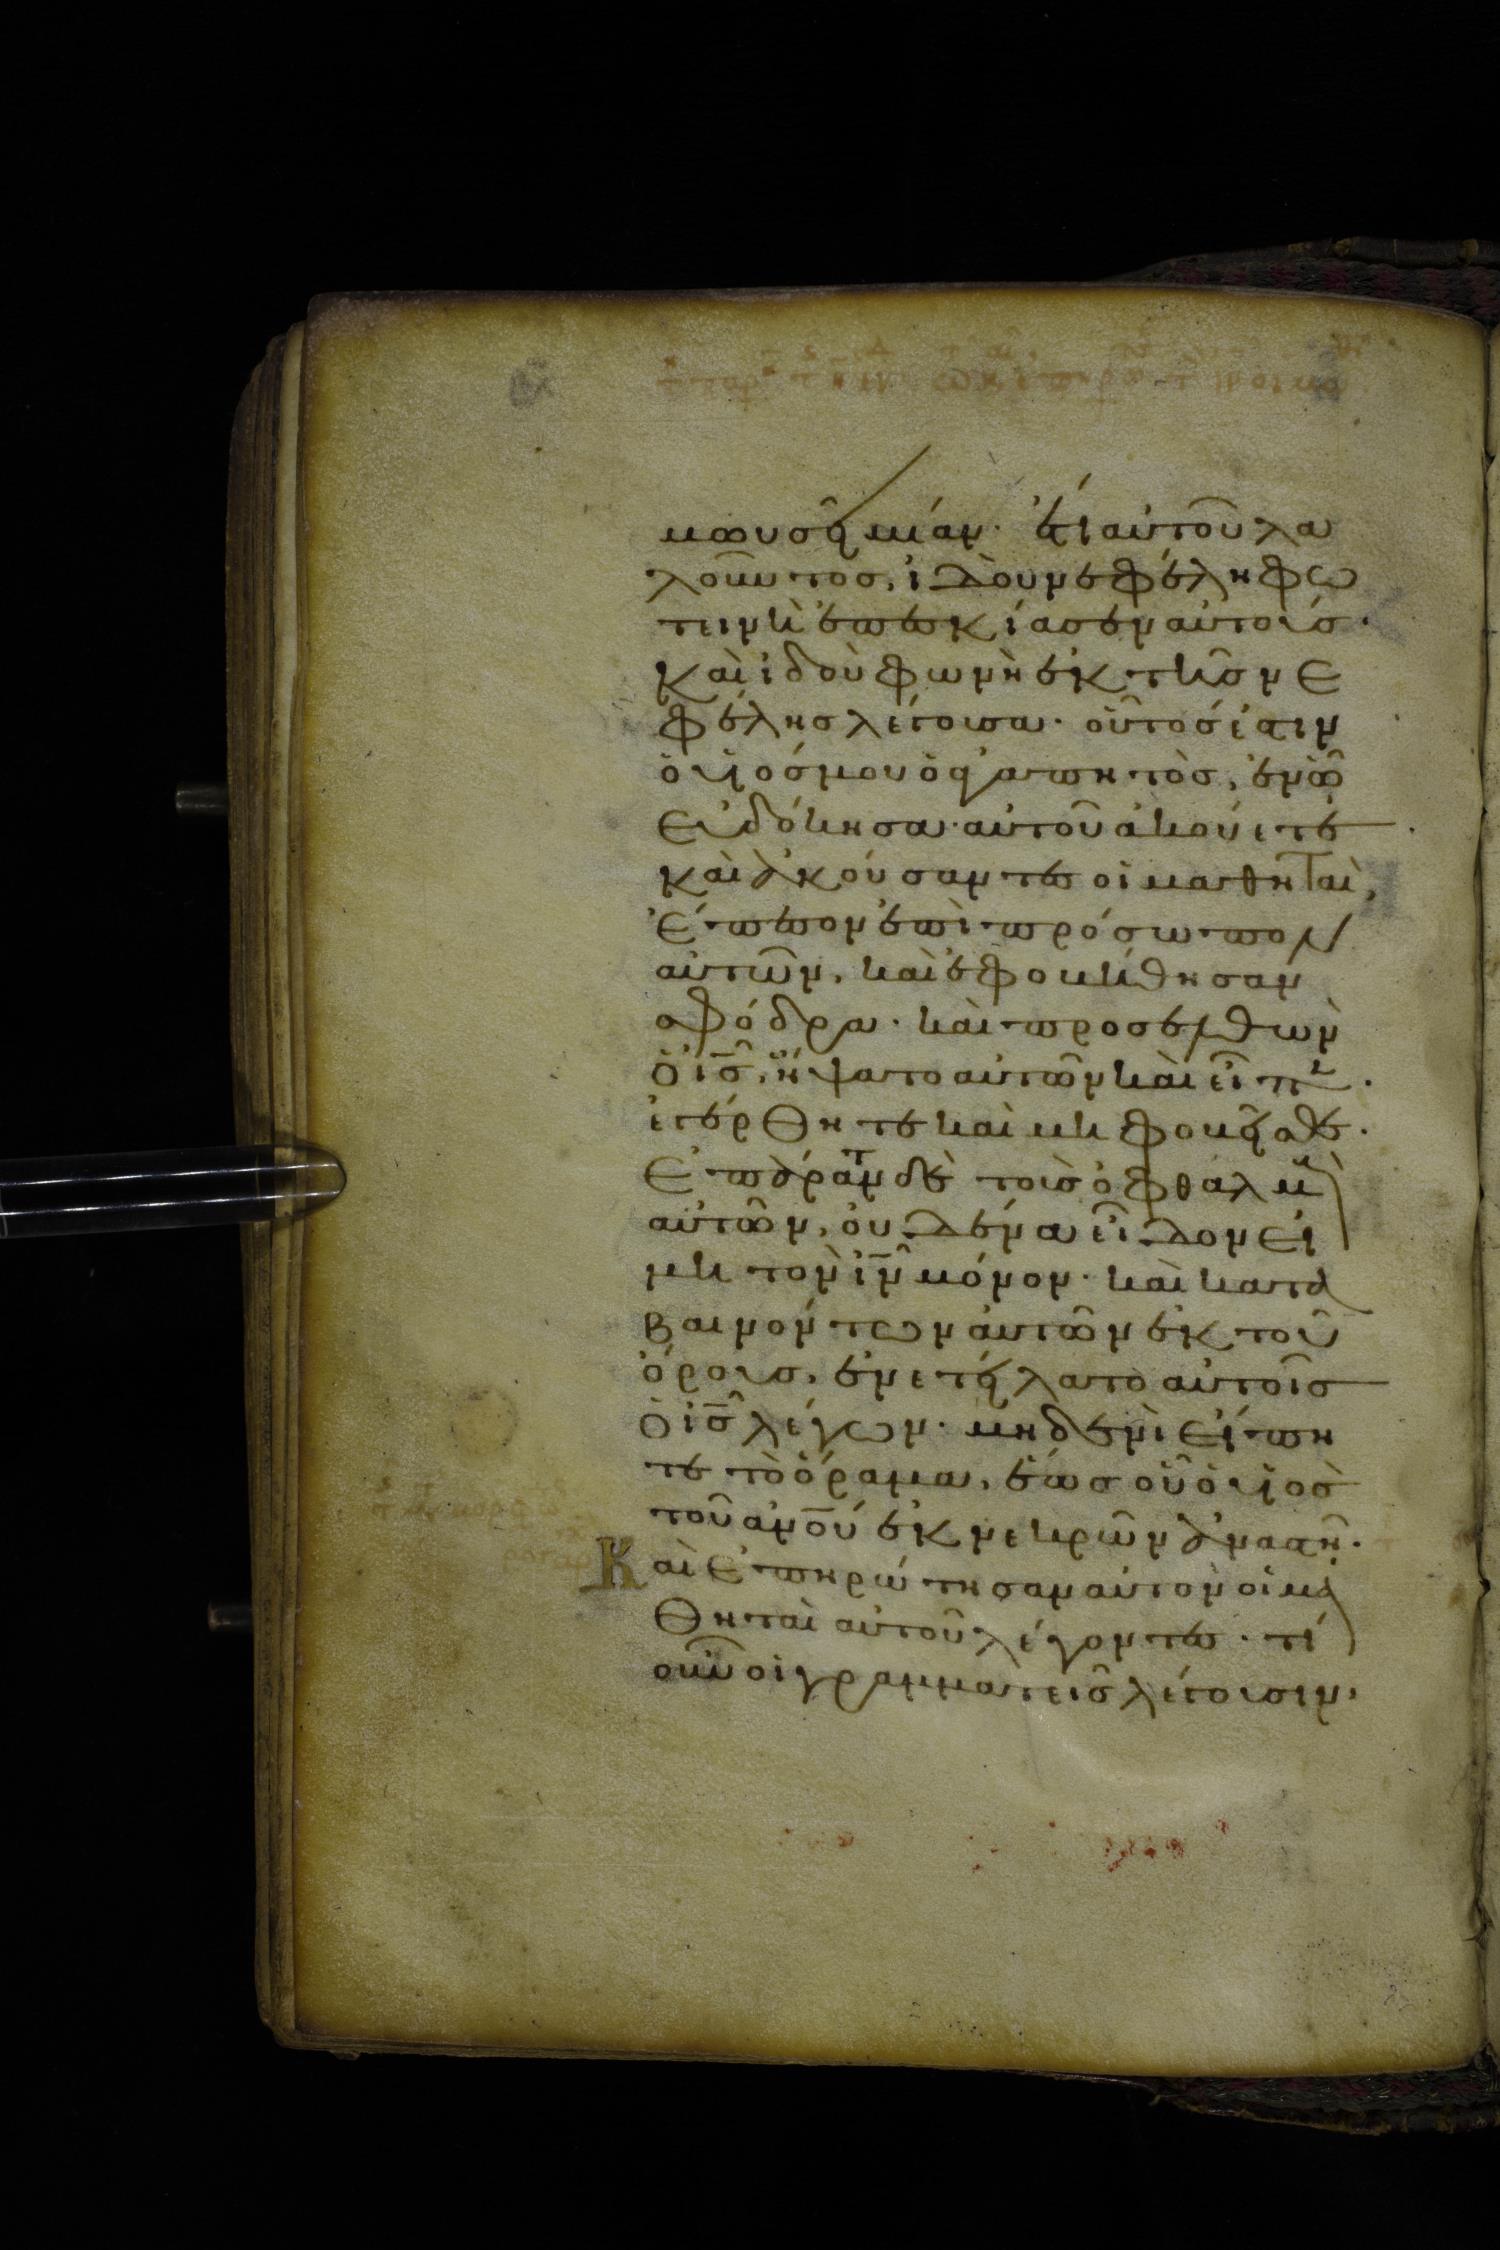 μωυσῆ μίαν· ἔτι αὐτοῦ λα
λοῦντος, ἰδοὺ νεφέλη φω
τεινὴ ἐπεσκίασεν αὐτούς·
καὶ ἰδοὺ φωνὴ ἐκ τῆς νε
φέλης λέγουσα· οὗτός ἐστιν
ὁ υἱός μου ὁ ἀγαπητὸς, ἐν ᾧ
εὐδόκησα· αὐτοῦ ἀκούετε
καὶ ἀκούσαντες οἱ μαθηταὶ,
ἔπεσον ἐπὶ πρόσωπον
αὐτῶν, καὶ ἐφοβήθησαν
σφόδρα· καὶ προσελθὼν
ὁ ι̅ς̅, ἥψατο αὐτῶν καὶ εἶπεν·
ἐγέρθητε καὶ μὴ φοβεῖσθε·
ἐπάραντες δὲ τοὺς ὀφθαλμοὺς
αὐτῶν, οὐδένα εἶδον εἰ
μὴ τὸν ι̅ν̅ μόνον· καὶ κατα
βαινόντων αὐτῶν ἐκ τοῦ
ὄρους, ἐνετείλατο αὐτοῖς
ὁ ι̅ς̅ λέγων· μηδενὶ εἴπη
τε τὸ ὅραμα, ἕως οὗ ὁ υἱὸς
τοῦ α̅ν̅ο̅υ̅ ἐκ νεκρῶν ἀναστῆ·
Καὶ ἐπηρώτησαν αὐτὸν οἱ μα
θηταὶ αὐτοῦ λέγοντες· τί
οὖν οἱ γραμματεῖς λέγουσιν,